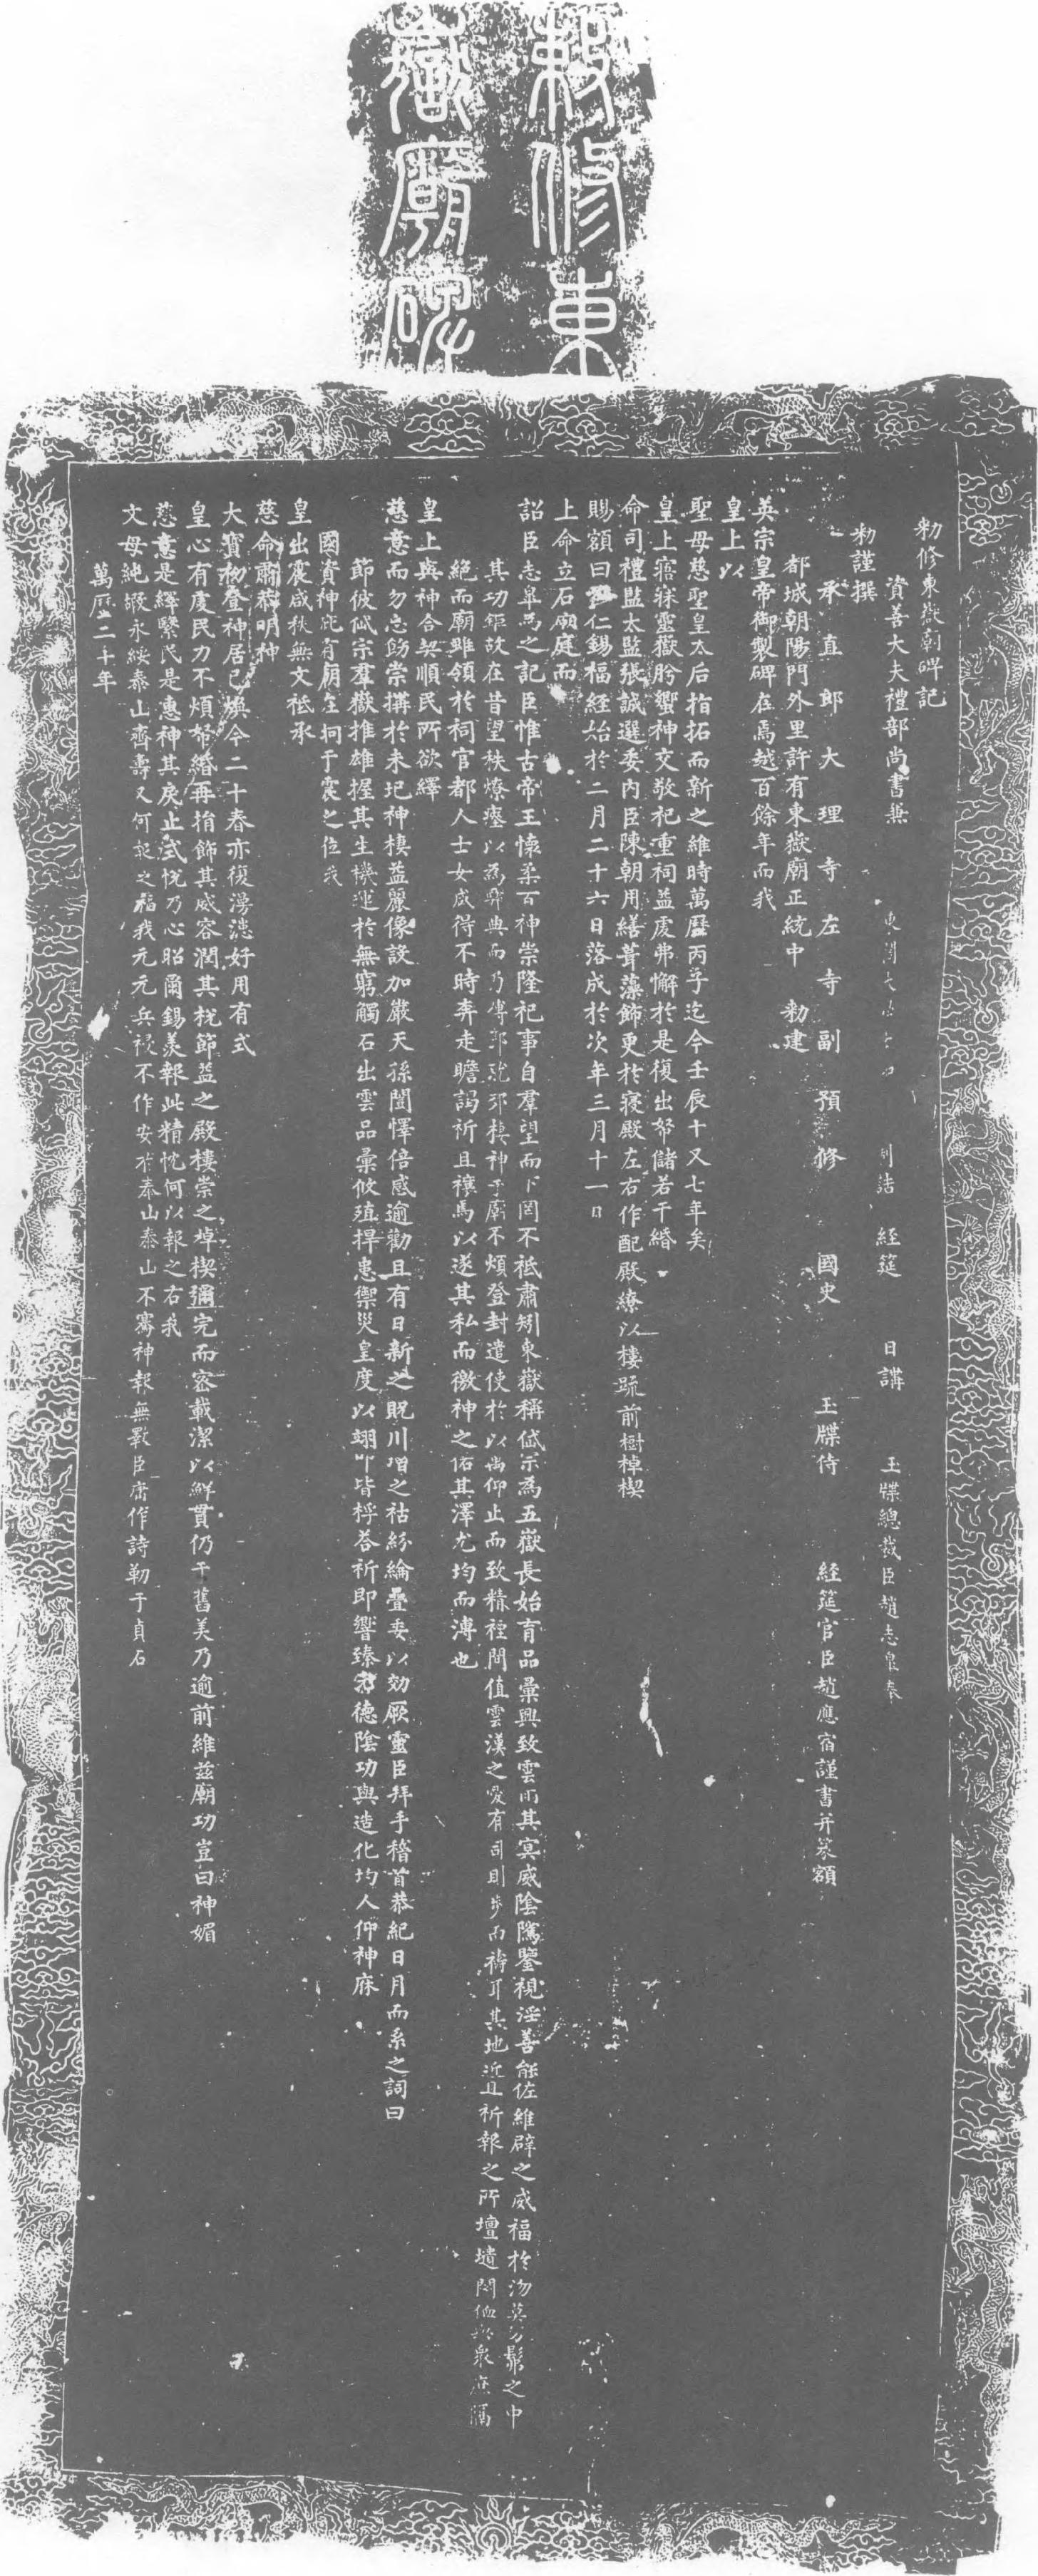 敕修東
嶽廟碑
勑修東嶽廟碑記
資善大夫禮部尚書兼東閣大 制誥 經筵 日講 玉牒總裁臣趙志臯奉
勑謹撰
承直郎大理寺左寺副預修 國史 玉牒侍 經筵官臣趙應宿謹書并篆額
都城朝陽門外里許有東嶽廟正統中 勑建
英宗皇帝御製碑在焉越百餘年而我
皇上以
聖母慈聖皇太后指拓而新之維時萬曆丙子迄今壬辰十又七年矣
皇上寤寐靈嶽肹蠁神交敬祀重祠益虔弗懈於是復出帑儲若干緡
命司禮監太監張誠選委內臣陳朝用繕葺藻飾更於寢殿左右作配殿繚以樓疏前樹棹楔
賜額曰 仁錫福經始於二月二十六日落成於次年三月十一日
上命立石廟庭而
詔臣志臯為之記臣惟古帝王懷柔百神崇隆祀事自羣望而下罔不祗肅矧東嶽稱岱宗為五嶽長始育品彙興致雲雨其冥威陰騭鑒視淫善能佐維辟之威福於沕 之中
其功鉅故在昔望秩燎瘞以為彛典而乃 棲神于廟不煩登封遣使於以 仰止而致精禋間值雲漢之 有司則步而禱耳其地近且祈報之所壇壝 衆庶隔
絕而廟雖領於祠官都人士女咸得不時奔走瞻謁祈且禳焉以遂其私而徼神之佑其澤尤均而溥也
皇上與神合契順民所欲繹
慈意而勿忘飭崇搆於未圮神棲益麗像設加嚴天孫闓懌倍感逾勸且有日新之貺川增之祜紛綸疊委以効厥靈臣拜手稽首恭紀日月而系之詞曰
節彼岱宗羣嶽推雄握其生機運於無窮觸石出雲品彙攸殖捍患禦災皇度以翊 皆桴答祈即響臻 德陰功與造化均人仰神庥
國資神庇有廟 于震之位我
皇出震咸秩無文祗承
慈命肅恭明神
大寶初登神居已煥今二十春亦復漫漶好用有式
皇心有虔民力不煩帑緡再捐飾其威容潤其棁節益之殿樓崇之棹楔彌完而密載潔以鮮貫仍于舊美乃逾前維茲廟功豈曰神媚
慈意是繹繄民是惠神其戾止式悅乃心昭爾錫羨報此精忱何以報之右我
文母純嘏永綏泰山齊壽又何報之福我元元兵祲不作安於泰山泰山不騫神報無斁臣庸作詩勒于貞石
萬曆二十年